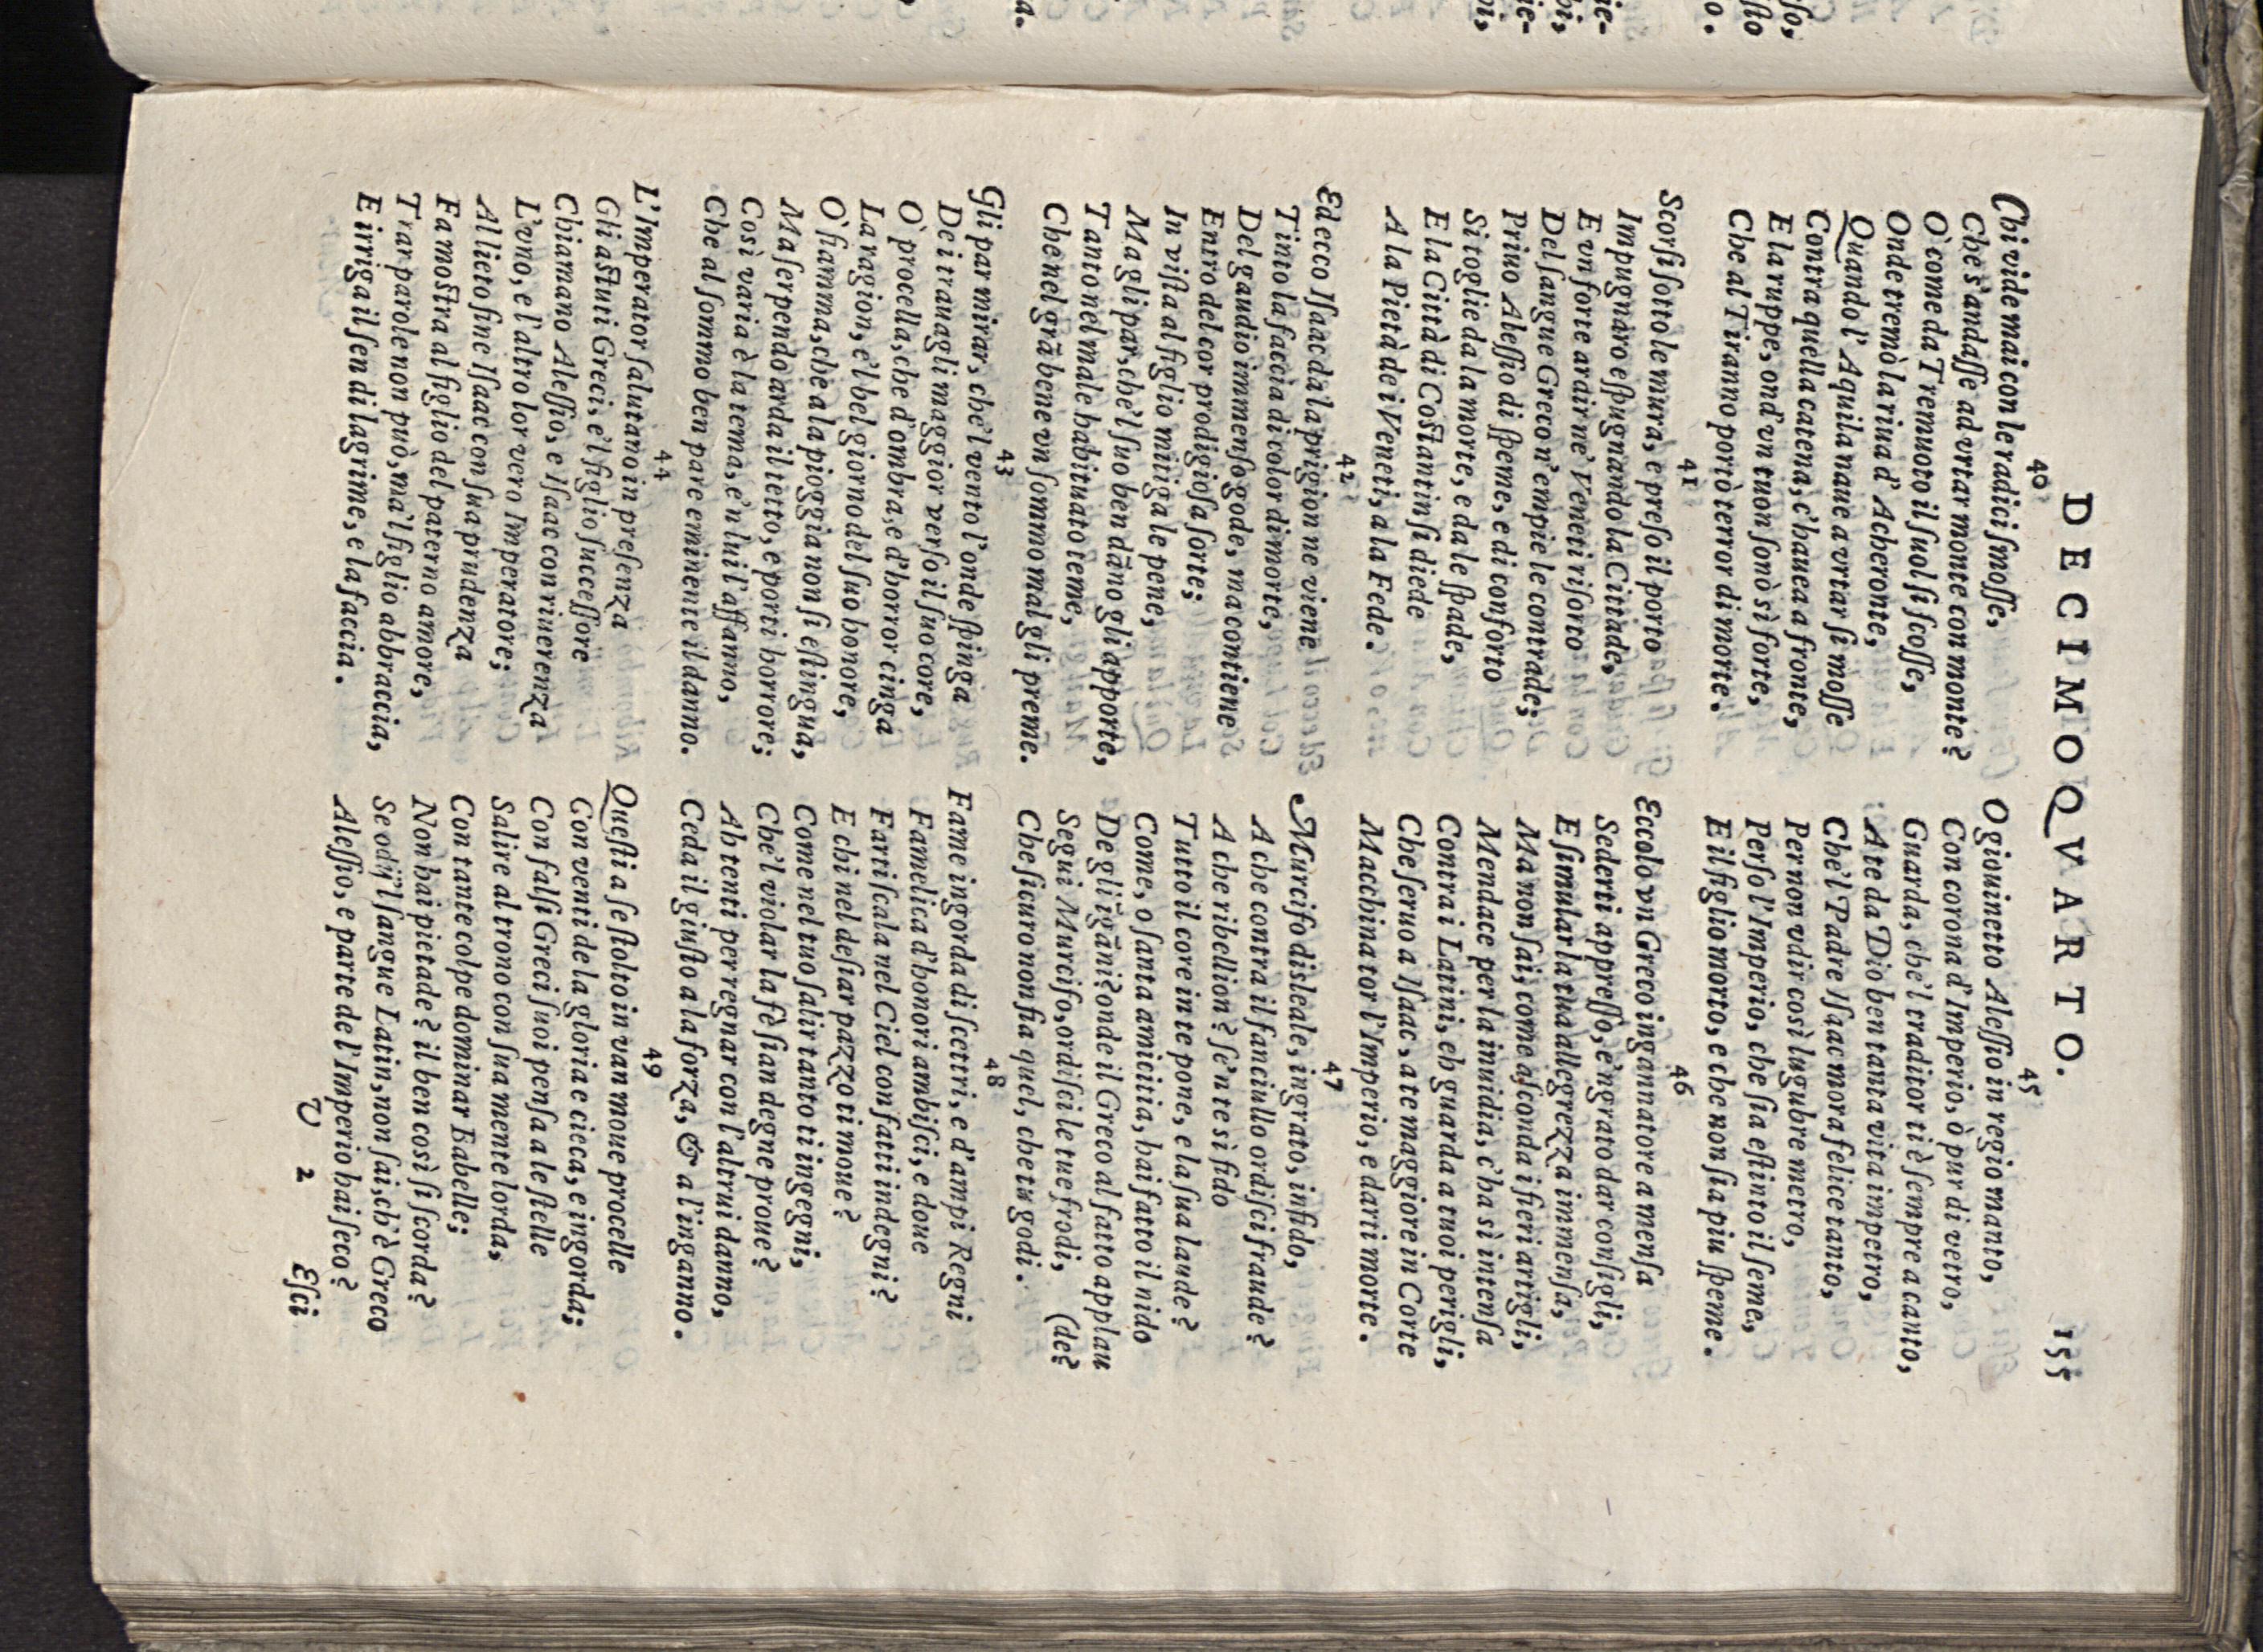 DECIMOQVARTO. 155
40
Chi vide mai con le radici ſmoſſe,
Che s'andaſſe ad vrtar monte con monte?
O' come da Tremuoto il ſuol ſi ſcoſſe,
Onde tremò la riua d'Acheronte,
Quando l'Aquila naue a vrtar ſi moſſe
Contra quella catena, c'hauea a fronte,
E la ruppe, ond'vn tuon ſonò sì forte,
Che al Tiranno portò terror di morte.
41
Scorſi ſotto le mura, e preſo il porto
Impugnaro eſpugnando la Cittade,
E vn forte ardir ne' Veneti riſorto
Del ſangue Greco n'empie le contrade;
Priuo Aleſſio di ſpeme, e di conforto
Si toglie da la morte, e da le ſpade,
E la Città di Coſtantin ſi diede
A la Pietà de i Veneti, a la Fede.
42
Ed ecco Iſaac da la prigion ne viene
Tinto la faccia di color di morte,
Del gaudio immenſo gode, ma contiene
Entro del cor prodigioſa ſorte;
In viſta al figlio mitiga le pene,
Ma gli par, che'l ſuo ben dāno gli apporte,
Tanto nel male habituato teme,
Che nel grā bene vn ſommo mal gli preme.
43
Gli par mirar, che'l vento l'onde ſpinga
De i trauagli maggior verſo il ſuo core,
O' procella, che d'ombra, e d'horror cinga
La ragion, e'l bel giorno del ſuo honore,
O' fiamma, che a la pioggia non ſi eſtingua,
Ma ſerpendo arda il tetto, e porti horrore;
Così varia è la tema, e'n lui l'affanno,
Che al ſommo ben pare eminente il danno.
44
L'Imperator ſalutano in preſenza
Gli aſtuti Greci, e'l figlio ſucceſſore
Chiamano Aleſſio, e Iſaac con riuerenza
L'vno, e l'altro lor vero Imperatore;
Al lieto fine Iſaac con ſua prudenza
Fa moſtra al figlio del paterno amore,
Trar parole non può, ma'l figlio abbraccia,
E irriga il ſen di lagrime, e la faccia.
45
O giouinetto Aleſſio in regio manto,
Con corona d'Imperio, ò pur di vetro,
Guarda, che'l traditor ti è ſempre a canto,
A te da Dio ben tanta vita impetro,
Che'l Padre Iſaac mora felice tanto,
Per non vdir così lugubre metro,
Perſo l'Imperio, che ſia eſtinto il ſeme,
E il figlio morto, e che non ſia piu ſpeme.
46
Eccolo vn Greco ingannatore a menſa
Sederti appreſſo, e'ngrato dar conſigli,
E ſimular la tua allegrezza immenſa,
Ma non ſai, come aſconda i fieri artigli,
Mendace per la inuidia, c'ha sì intenſa
Contra i Latini, eh guarda a tuoi perigli,
Che ſeruo a Iſaac, a te maggiore in Corte
Macchina tor l'Imperio, e darti morte.
47
Murcifo disleale, ingrato, infido,
A che contra il fanciullo ordiſci fraude?
A che ribellion? ſe'n te sì fido
Tutto il core in te pone, e la ſua laude?
Come, o ſanta amicitia, hai fatto il nido
De gli īgāni? onde il Greco al fatto applau
Segui Murcifo, ordiſci le tue frodi, (de?
Che ſicuro non ſia quel, che tu godi.
48
Fame ingorda di ſcettri, e d'ampi Regni
Famelica d'honori ambiſci, e doue
Farti ſcala nel Ciel con fatti indegni?
E chi nel deſiar pazzo ti moue?
Come nel tuo ſalir tanto ti ingegni,
Che'l violar la fè ſian degne proue?
Ah tenti per regnar con l'altrui danno,
Ceda il giuſto a la forza, & a l'inganno.
49
Queſti a ſe ſtolto in van moue procelle
Con venti de la gloria e cieca, e ingorda;
Con falſi Greci ſuoi penſa a le ſtelle
Salire al trono con ſua mente lorda,
Con tante colpe dominar Babelle;
Non hai pietade? il ben così ſi ſcorda?
Se odij'l ſangue Latin, non ſai, ch'è Greco
Aleſſio, e parte de l'Imperio hai ſeco?
V 2 Eſci